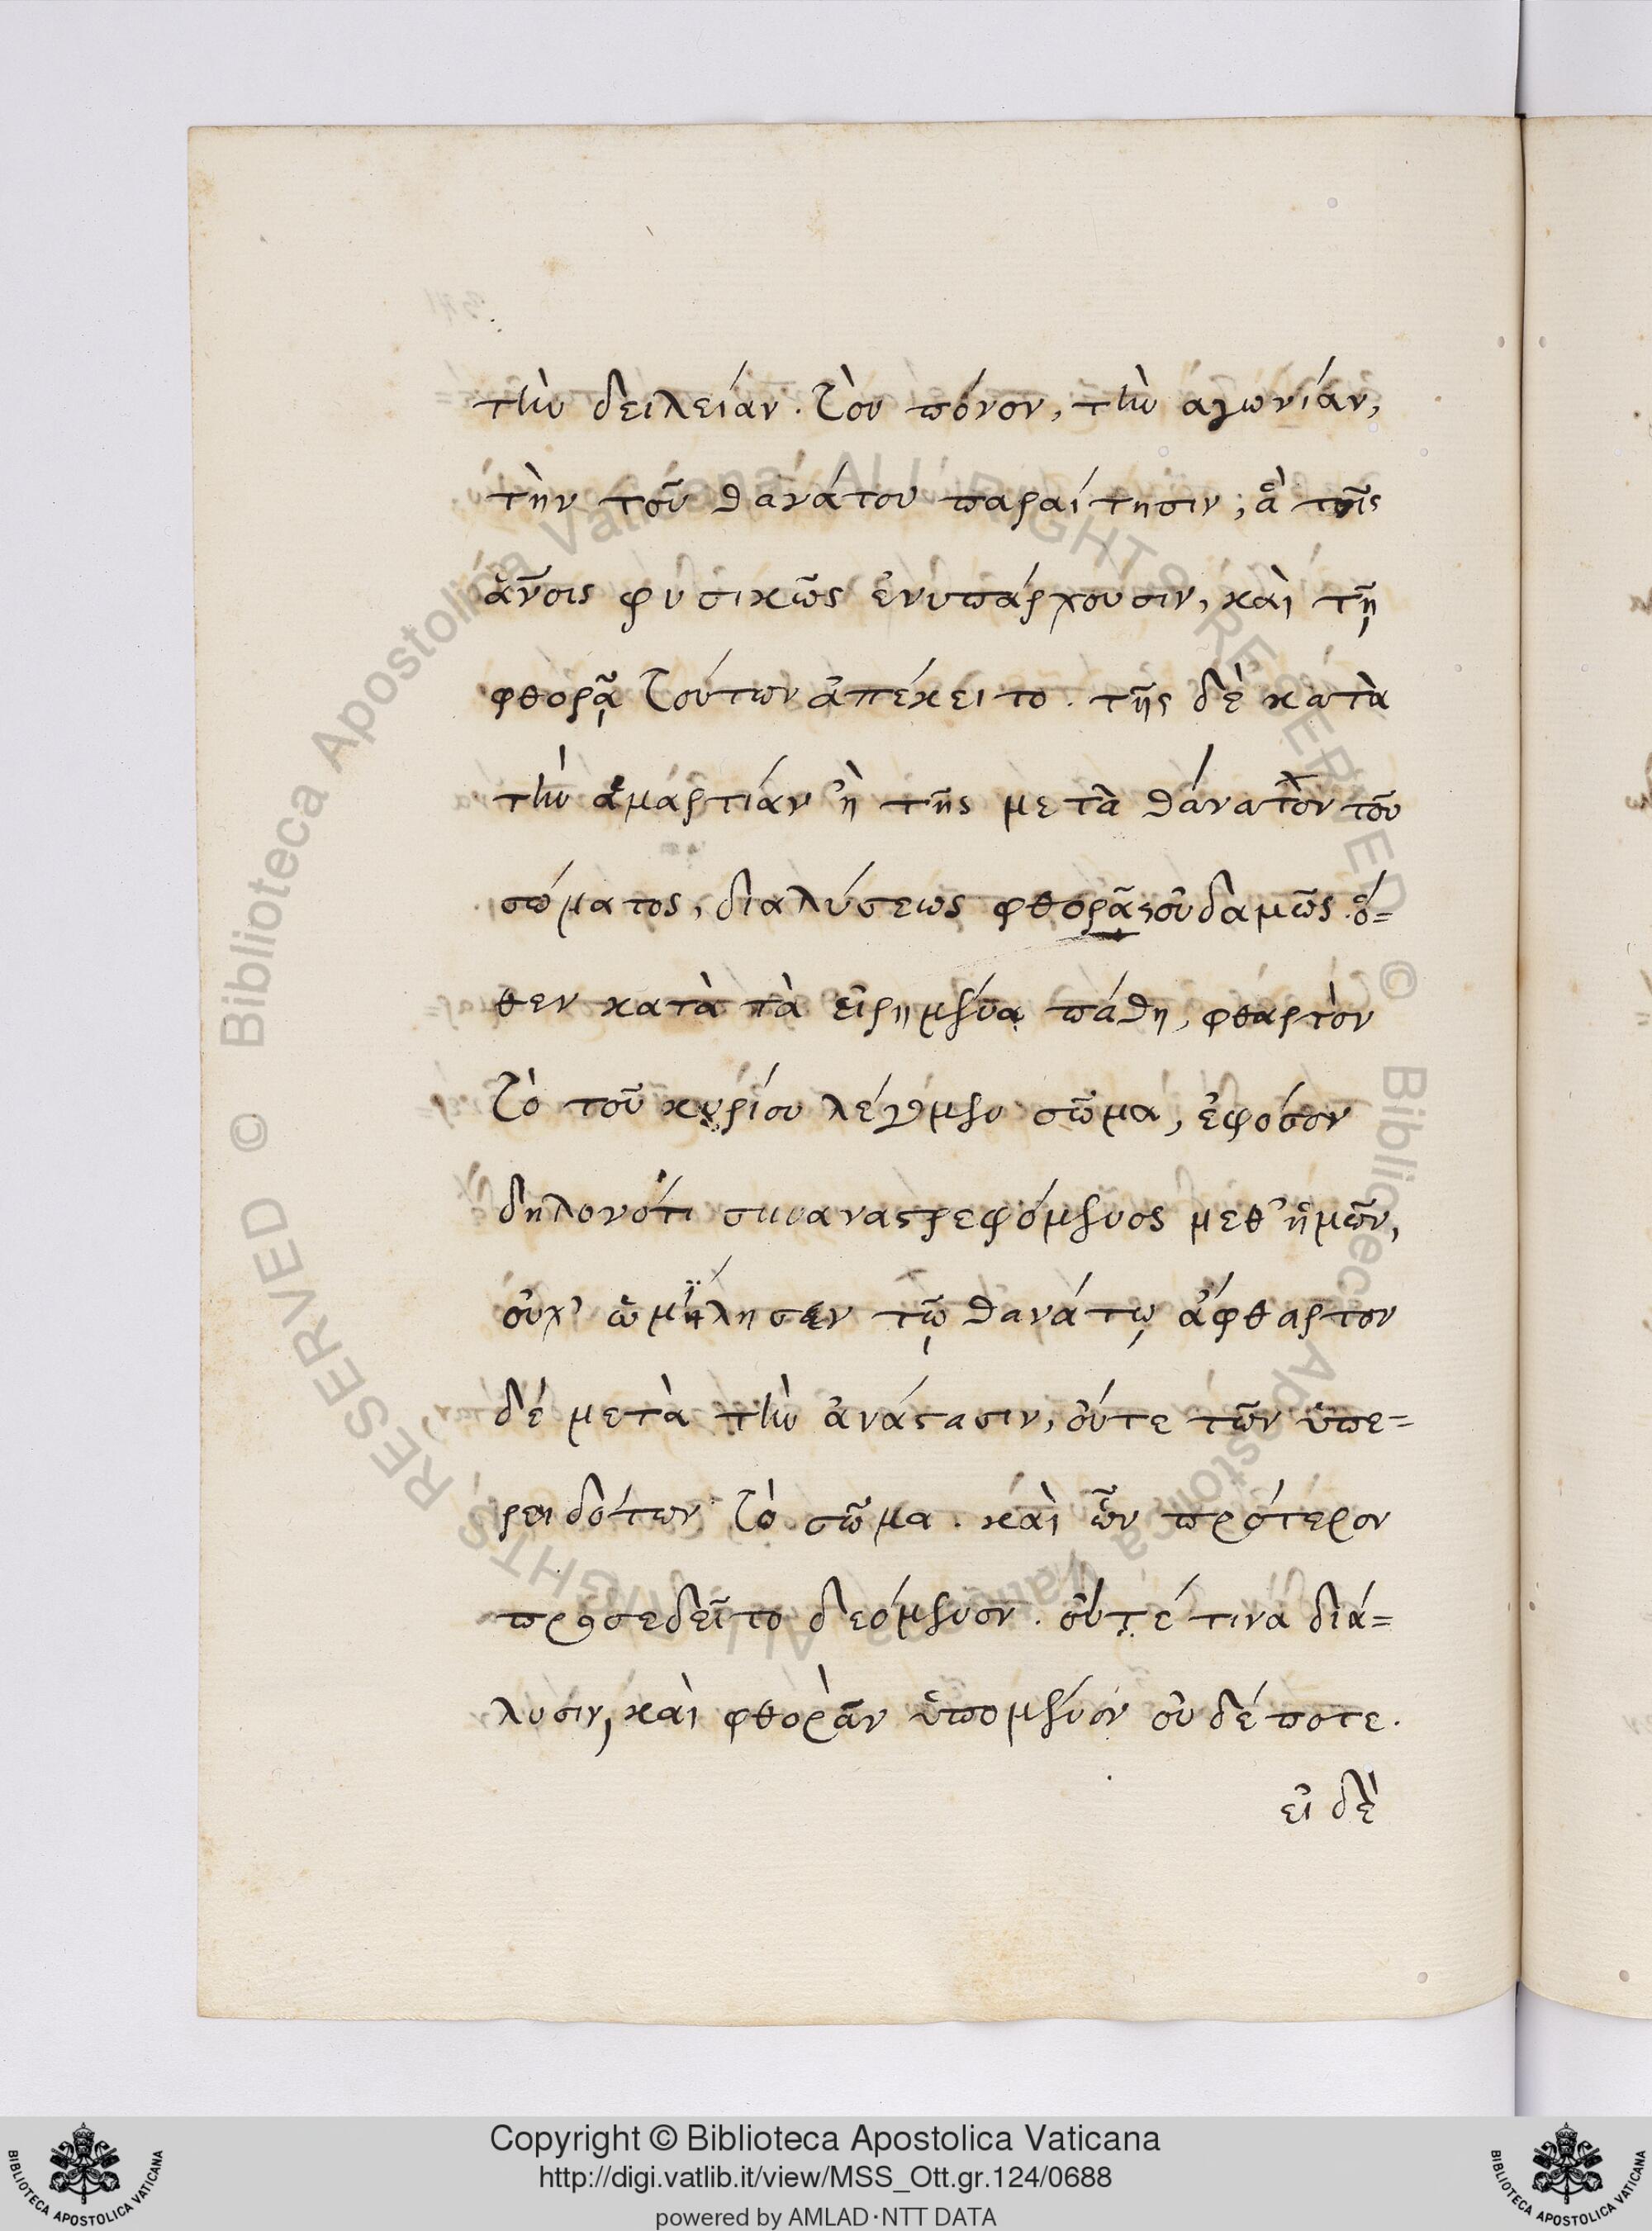 τὴν δειλείαν. τὸν πόνον, τὴν αγωνίαν,
τὴν τοῦ θανάτου παραίτησιν; ἃ τοῖς
ἀν̅οις φυσικῶς ἐνυπάρχουσιν, καὶ τῇ
φθορᾷ τούτων ἀπέκειτο. τῆς δὲ κατὰ
τὴν ἁμαρτίαν ἢ τῆς μετὰ θάνατον τοῦ
σώματος, διαλύσεως φθορᾶς οὐδαμῶς. ὅ=
θεν κατὰ τὰ εἰρημένα πάθη, φθαρτὸν
τὸ τοῦ κυρίου λέγομεν σῶμα, ἐφόσον
δηλονότι συναναστρεφόμενος μεθ' ἡμῶν,
οὐχ' ὡμήλησεν τῷ θανάτῳ ἀφθαρτον
δέ μετὰ τὴν ἀνάστασιν, οὔτε τῶν ὑπε=
ρειδότων τὸ σῶμα. καὶ ὧν πρότερον
προσεδεῖτο δεόμενον. οὔτέ τινα διά=
λυσιν, καὶ φθορὰν ὑπομένον οὐδέποτε.
εἰ δὲ
Copyright © Biblioteca Apostolica Vaticana
http://digi.vatlib.it/view/MSS_Ott.gr.124/0688
powered by AMLAD·NTT DATA